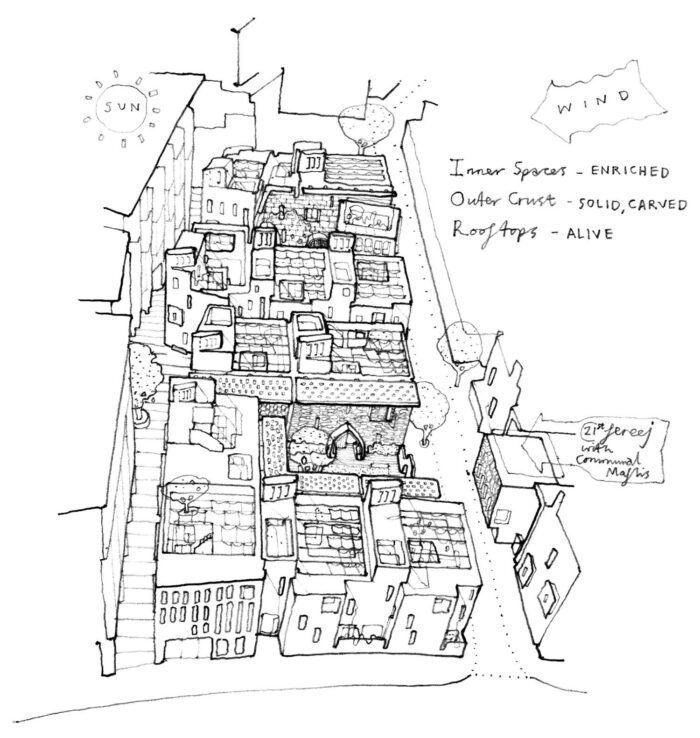 SUN
WIND
Inner Spaces - ENRICHED
Outer Crust - SOLID, CARVED
Rooftops - ALIVE
21st fereej
with
Communal
Majlis